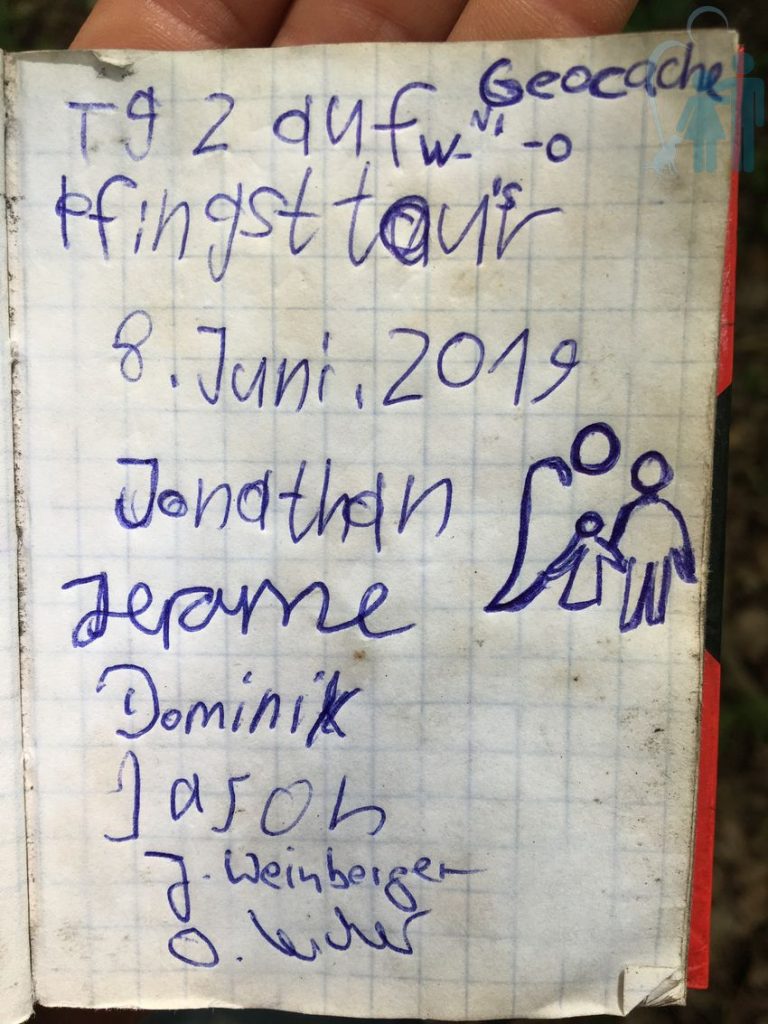 Geocache
Tg 2 auf W- -O
Pfingsttour
8. Juni. 2019
Jonathan
Jerome
Dominik
Jason
J. Weinberger
O.